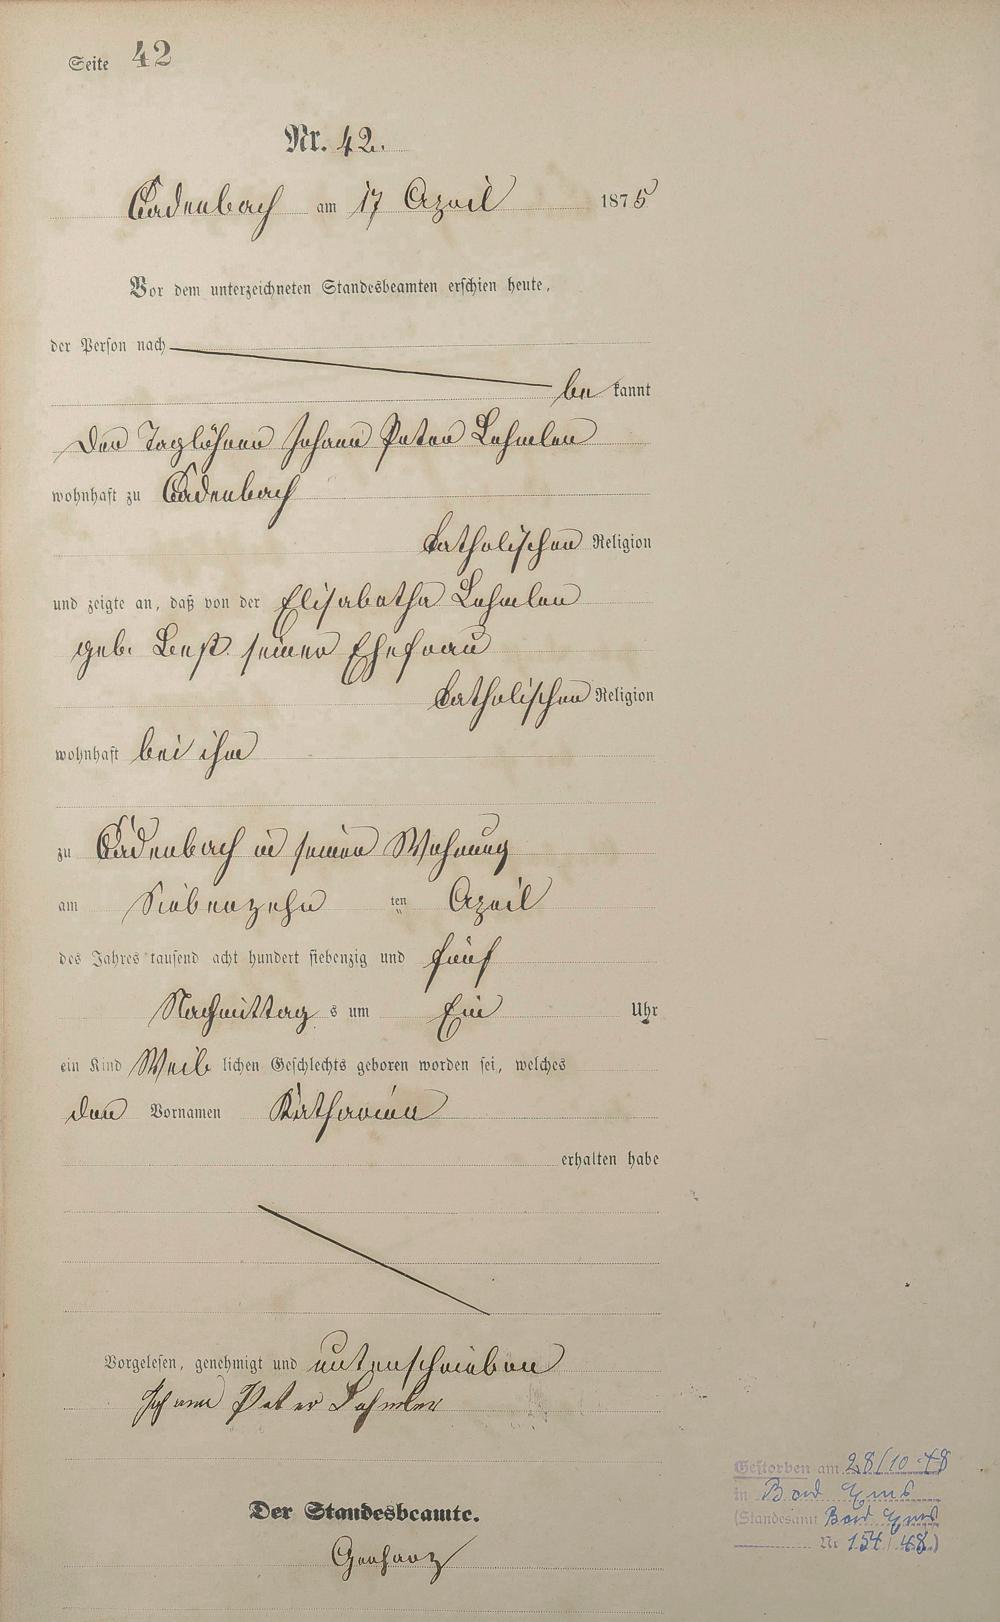 Seite 42
Nr. 42.
Cadenbach am 17 April 1875
Vor dem unterzeichneten Standesbeamten erschien heute,
der Person nach
bekannt
Der Taglöhner Johann Peter Lehmler
wohnhaft zu Cadenbach
katholischen Religion
und zeigte an, daß von der Elisabetha Lehmler
geb. Best seiner Ehefrau
katholischen Religion
wohnhaft bei ihm
zu Cadenbach in seiner Wohnung
am Siebenzehn ten April
des Jahres tausend acht hundert siebenzig und fünf
Nachmittag s um Ein Uhr
ein Kind Weiblichen Geschlechts geboren worden sei, welches
den Vornamen Katharina
erhalten habe
Vorgelesen, genehmigt und unterschrieben
Johann Peter Lehmler
Der Standesbeamte.
Gerharz
Gestorben am 28/10.48
in Bad Ems
(Standesamt Bad Ems
Nr 154/48.)